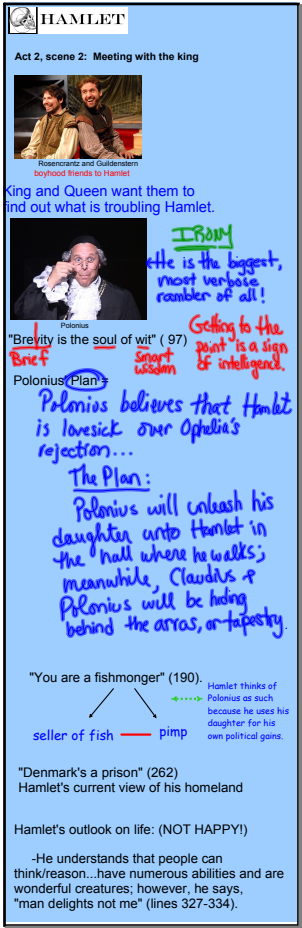 HAMLET
Act 2, scene 2: Meeting with the king
Rosencrantz and Guildenstern
boyhood friends to Hamlet
King and Queen want them to
find out what is troubling Hamlet.
IRONY
He is the biggest,
most verbose
rambler of all!
Polonius
"Brevity is the soul of wit" ( 97)
Brief
smart
wisdom
Getting to the
point is a sign
of intelligence.
Polonius' Plan =
Polonius believes that Hamlet
is lovesick over Ophelia's
rejection...
The Plan:
Polonius will unleash his
daughter unto Hamlet in
the hall where he walks;
meanwhile, Claudius &
Polonius will be hiding
behind the arras, or tapestry.
"You are a fishmonger" (190).
seller of fish
pimp
Hamlet thinks of
Polonius as such
because he uses his
daughter for his
own political gains.
"Denmark's a prison" (262)
Hamlet's current view of his homeland
Hamlet's outlook on life: (NOT HAPPY!)
-He understands that people can
think/reason...have numerous abilities and are
wonderful creatures; however, he says,
"man delights not me" (lines 327-334).